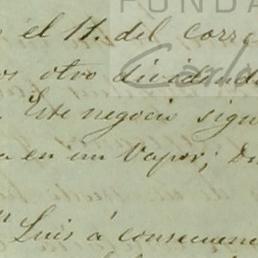 FUNDA
el 11. del corre
os otro dividendo
Este negocio sigu
a en un Vapor;
Luis á consecuenc